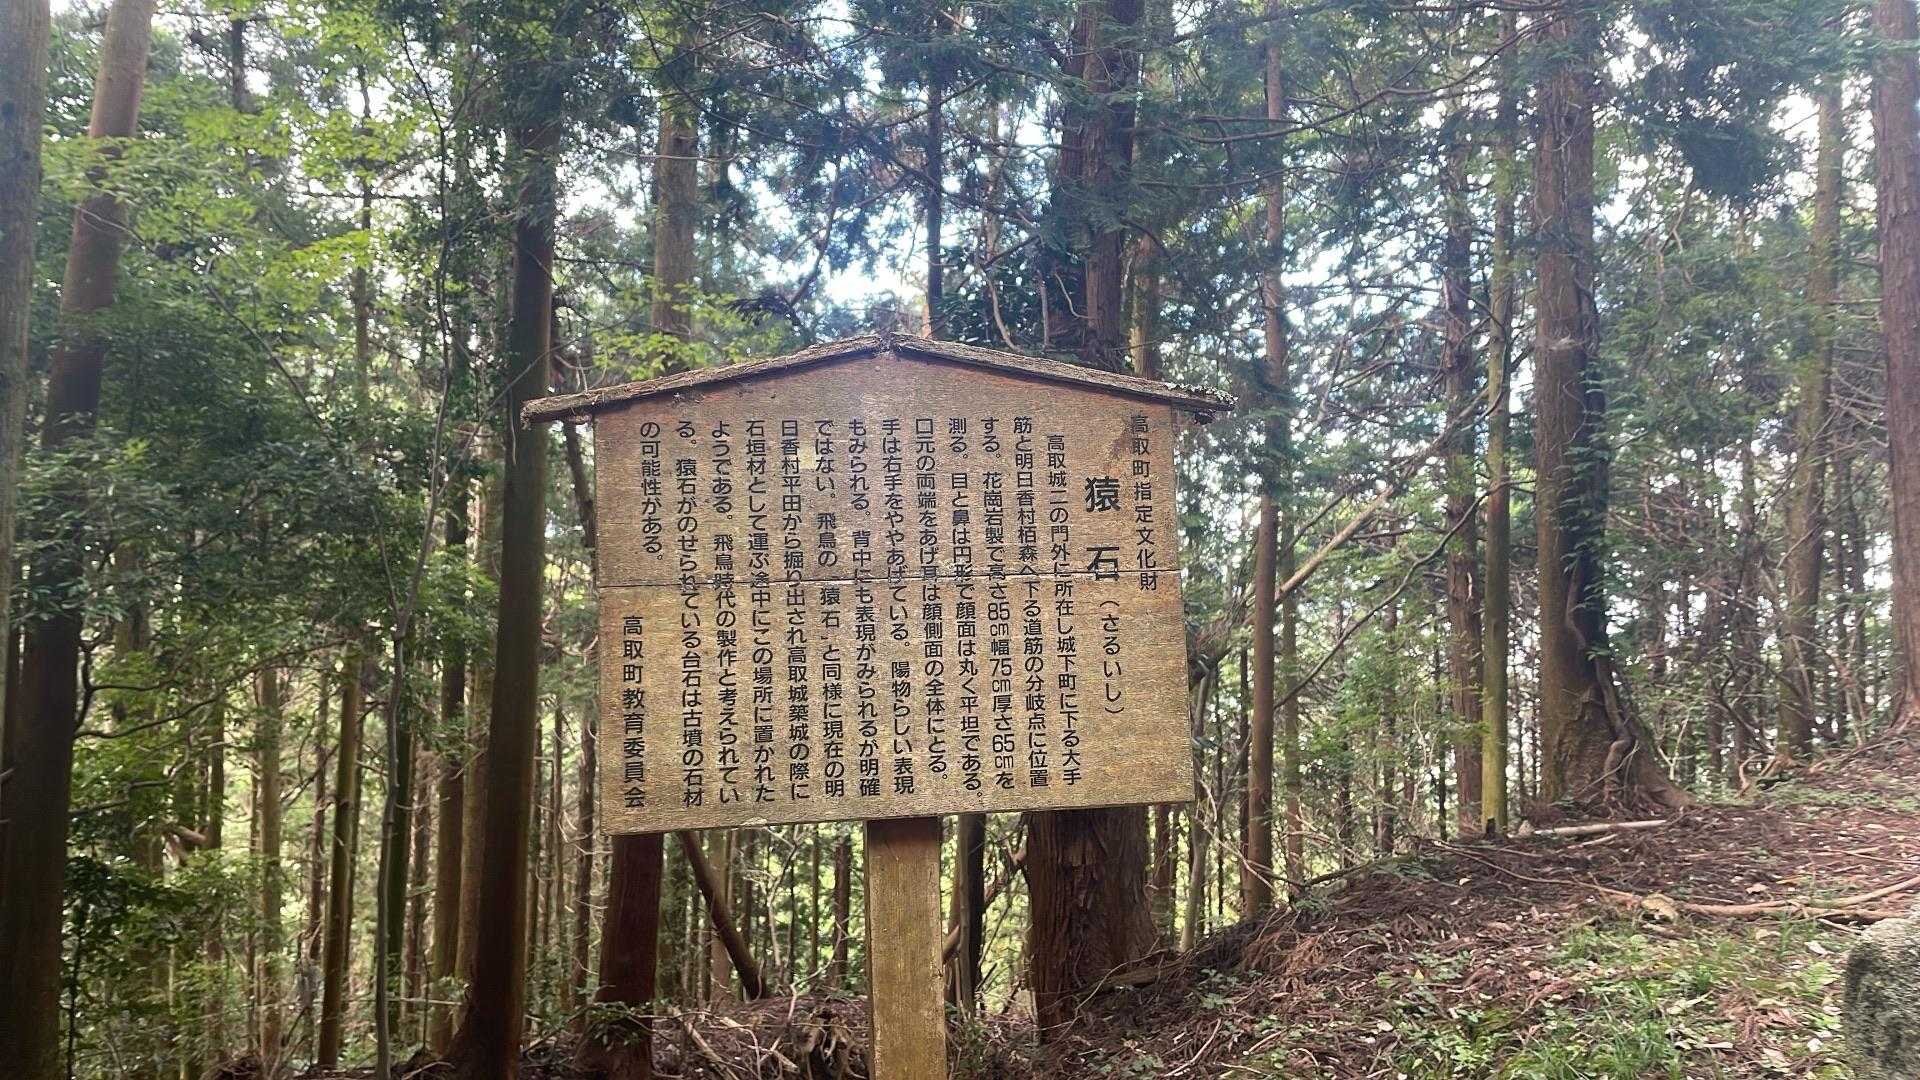 高取町指定文化財
猿石(さるいし)
高取城二の門外に所在し城下町に下る大手
筋と明日香村栢森へ下る道筋の分岐点に位置
する。花崗岩製で高さ85㎝幅75㎝厚さ65㎝を
測る。目と鼻は円形で顔面は丸く平坦である。
口元の両端をあげ耳は顔側面の全体にとる。
手は右手をややあげている。陽物らしい表現
もみられる。背中にも表現がみられるが明確
ではない。飛鳥の「猿石」と同様に現在の明
日香村平田から掘り出され高取城築城の際に
石垣材として運ぶ途中にこの場所に置かれた
ようである。飛鳥時代の製作と考えられてい
る。猿石がのせられている台石は古墳の石材
の可能性がある。
高取町教育委員会